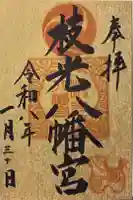 奉拝
枝光八幡宮
令和八年
一月三十日